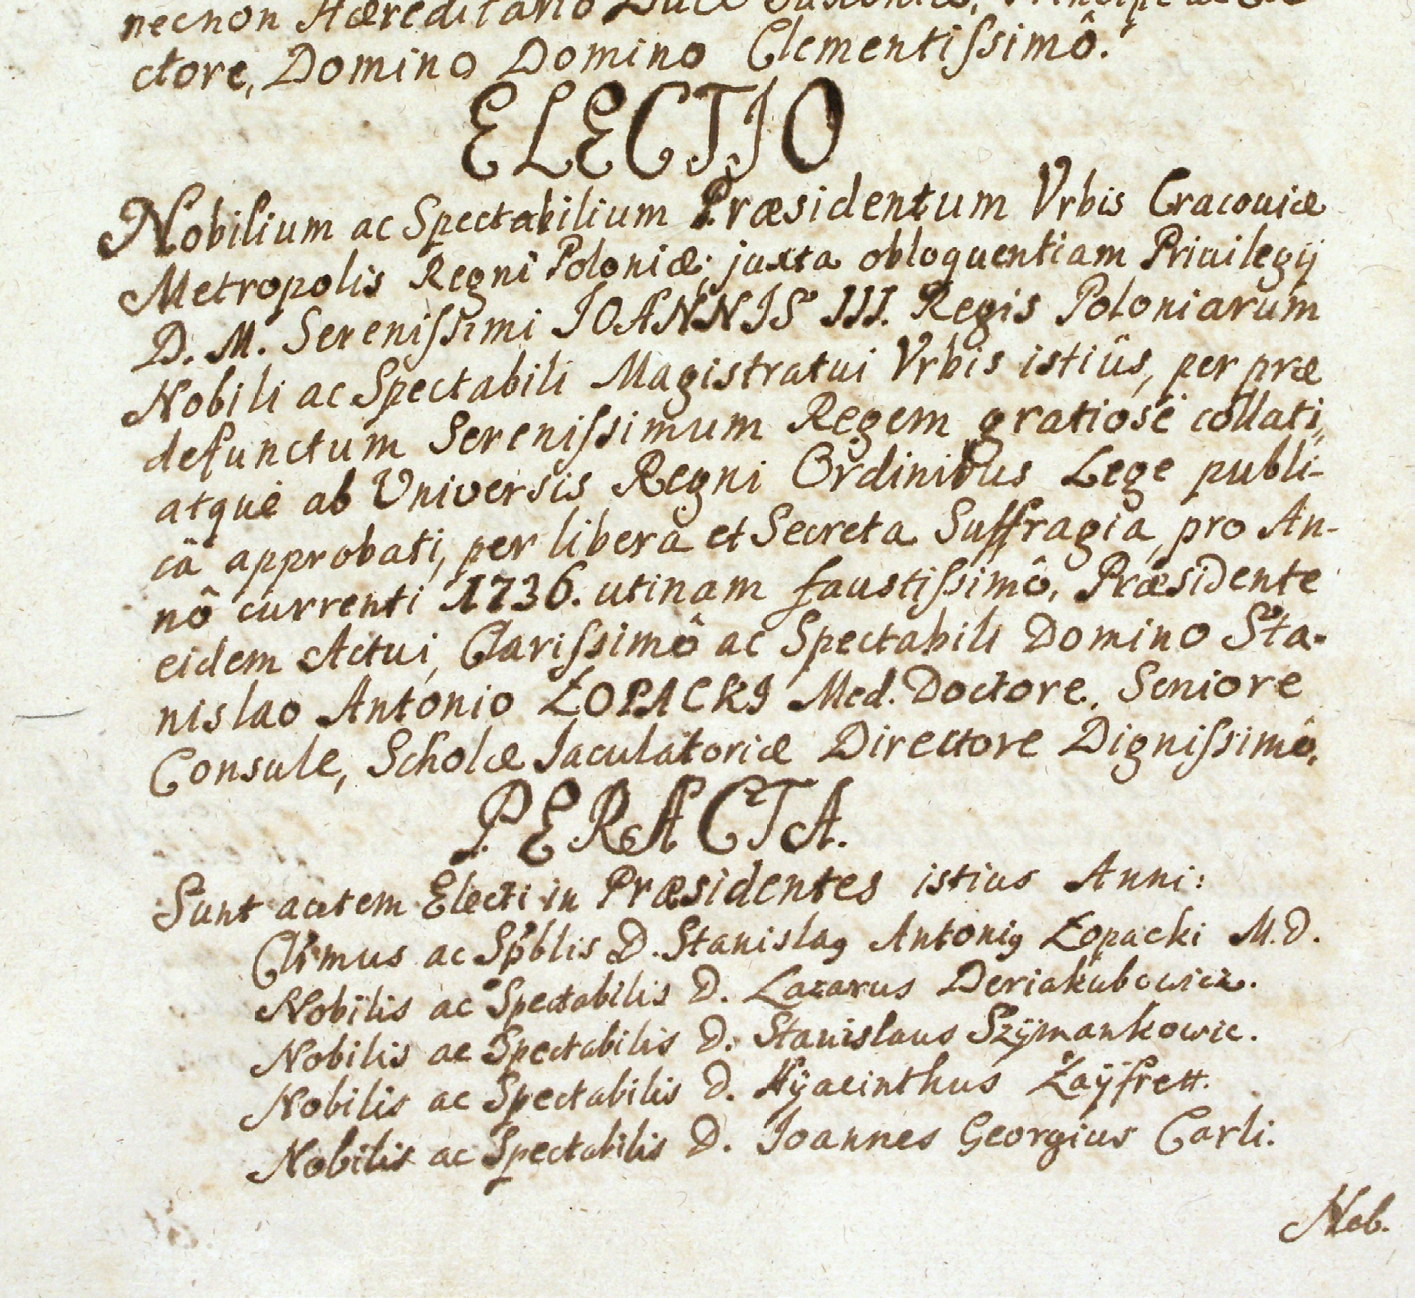 necnon Hæreditario Duce Saxoniæ, Principe
ctore, Domino Domino Clementiſsimô.
ELECTIO
Nobilium ac Spectabilium Præsidentum Vrbis Cracouiæ
Metropolis Regni Poloniæ; juxta obloquentiam Priuilegÿ
D. M. Sereniſsimi IOANNIS III. Regis Poloniarum
Nobili ac Spectabili Magistratui Vrbis istiûs, per præ
defunctum Sereniſsimum Regem gratiosè collati,
atquè ab Universis Regni Ordinibus Lege publi-
câ approbati, per libera et Secreta Suffragia, pro An-
nô currenti 1736. utinam faustiſsimô, Præsidente
eidem Actui, Clariſsimô ac Spectabili Domino Sta-
nislao Antonio ŁOPACKI Med. Doctore, Seniore
Consule, Scholæ Iaculatoriæ Directore Digniſsimô,
PERACTA.
Sunt autem Electi in Præsidentes istius Anni:
Clrmus ac Spblis D. Stanislaꝯ Antoniꝯ Łopacki M.D.
Nobilis ac Spectabilis D. Lazarus Deriakubowicz.
Nobilis ac Spectabilis D. Stanislaus Szÿmankowic.
Nobilis ac Spectabilis D. Hÿacinthus Zaÿfrett.
Nobilis ac Spectabilis D. Ioannes Georgius Carli.
Nob.